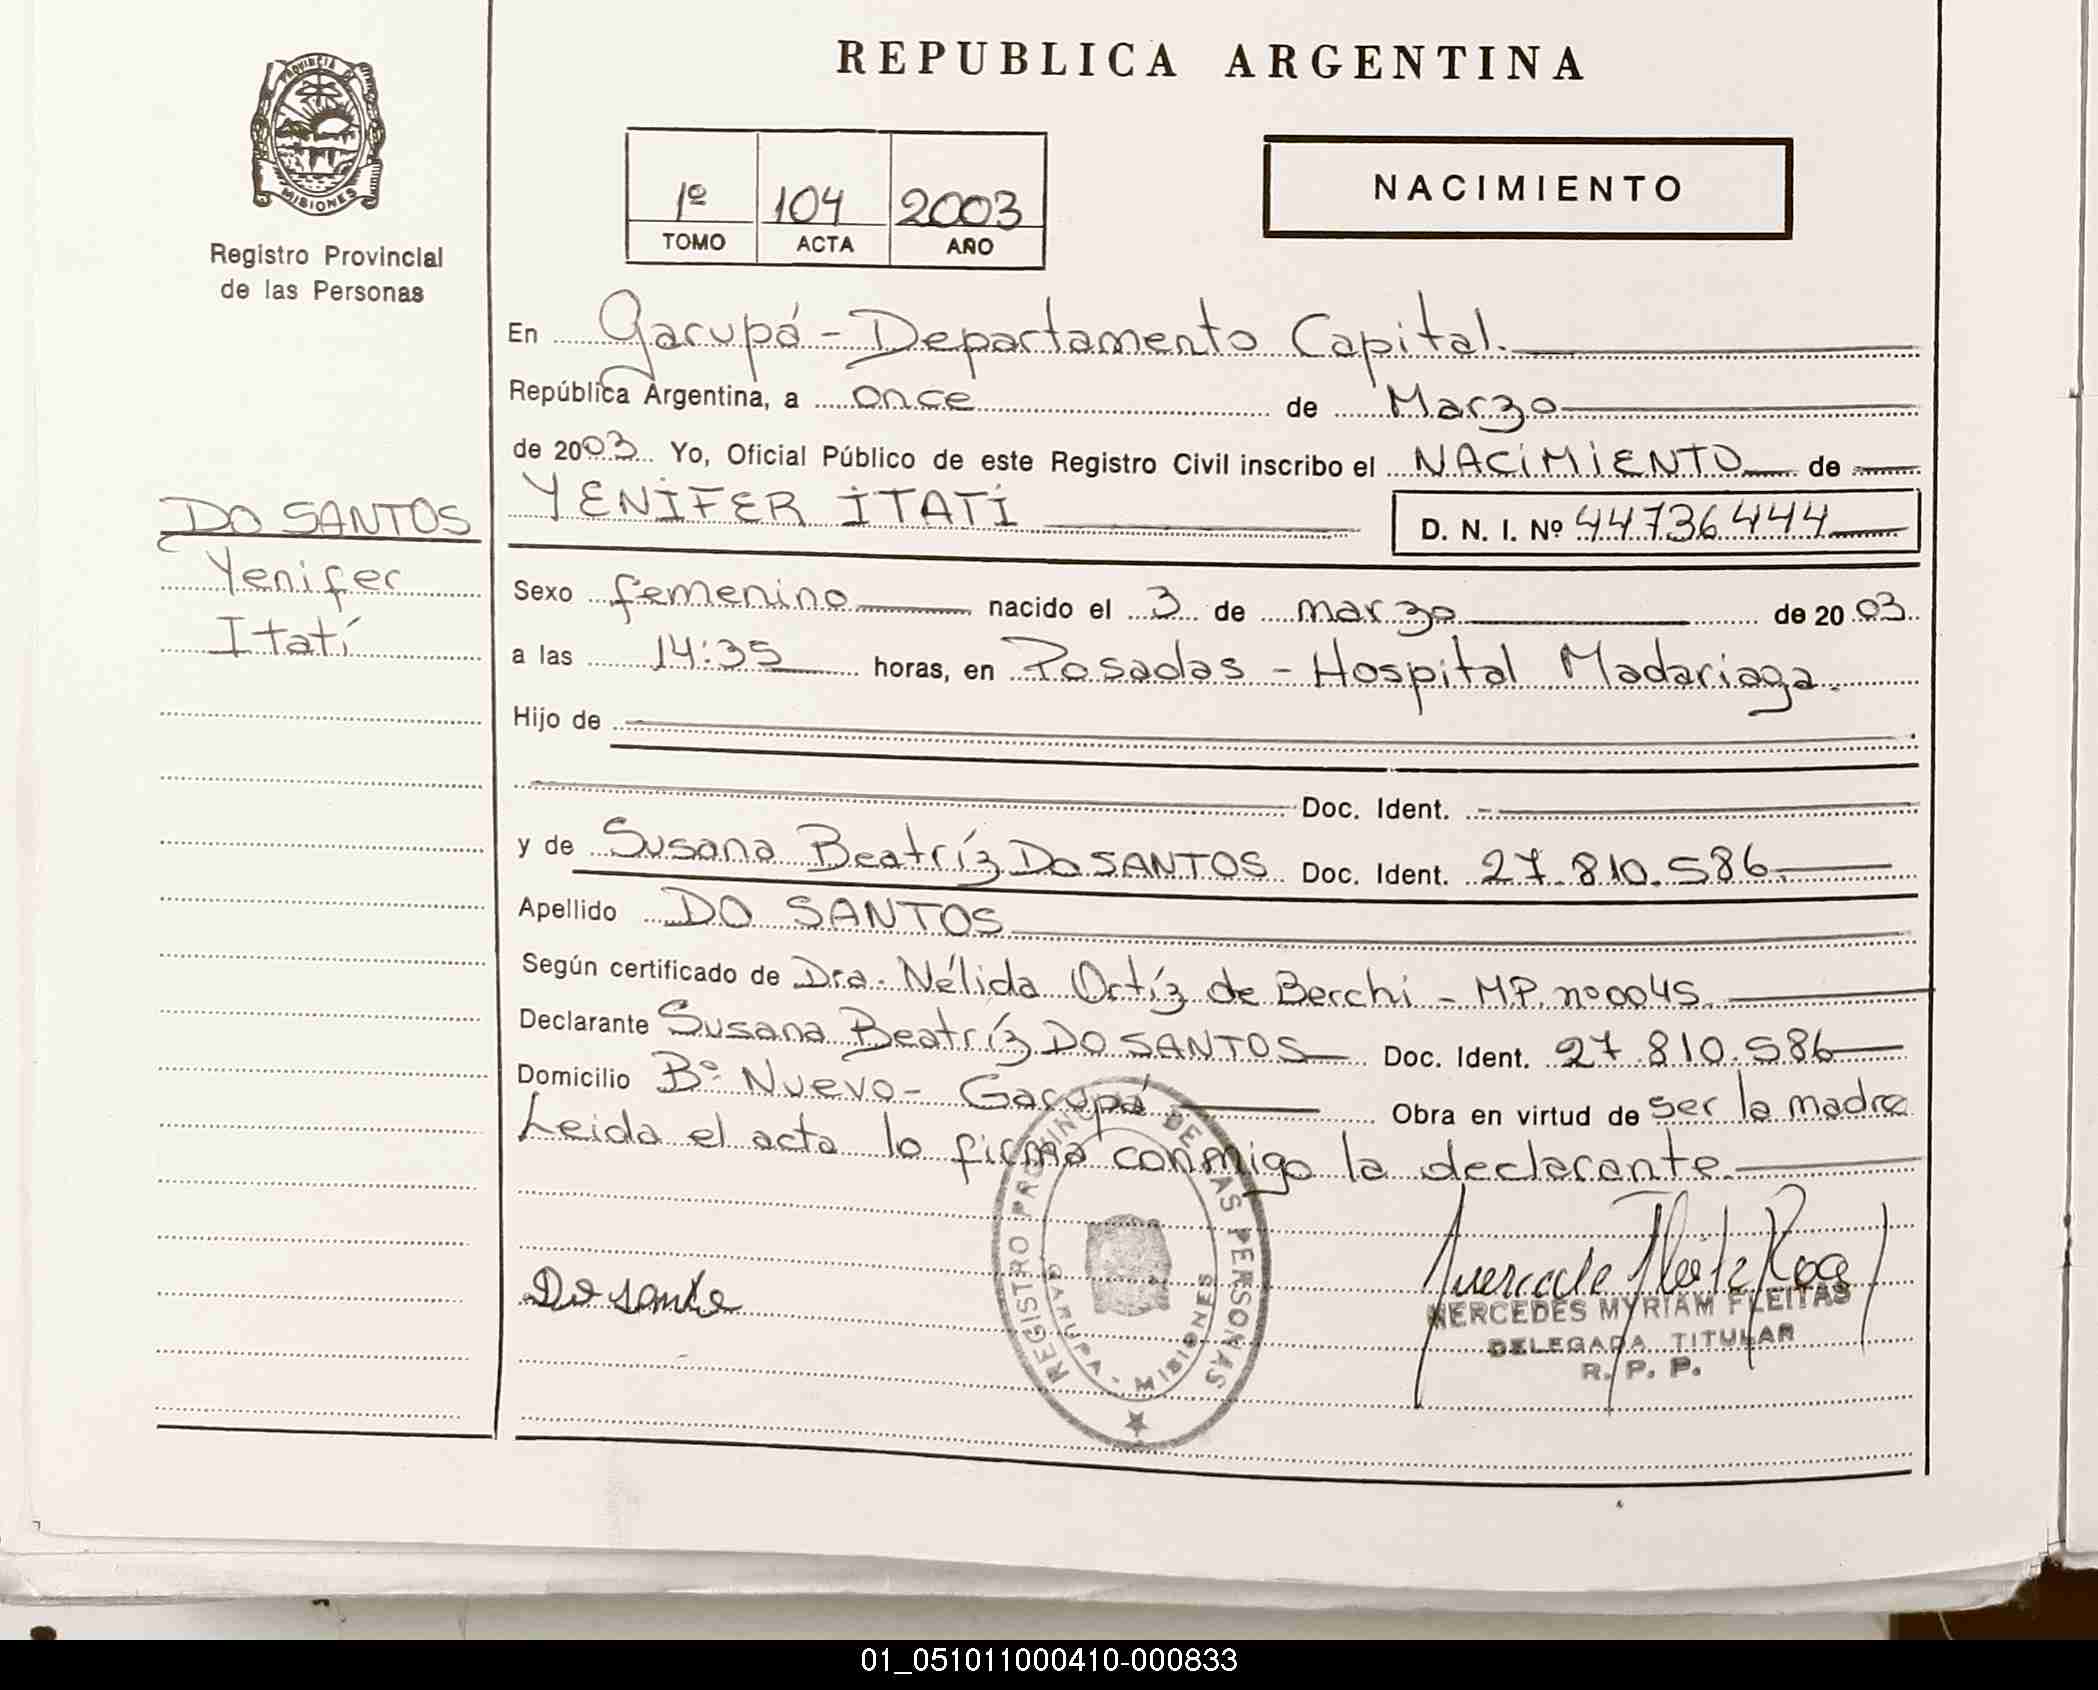 REPUBLICA ARGENTINA
PROVINCIA DE MISIONES
Registro Provincial
de las Personas
1º 104 2003
TOMO ACTA AÑO
NACIMIENTO
En Garupá - Departamento Capital.
República Argentina, a once de Marzo
de 2003 Yo, Oficial Público de este Registro Civil inscribo el NACIMIENTO de
DO SANTOS
Yenifer
Itatí
YENIFER ITATÍ D. N. I. Nº 44736444
Sexo femenino nacido el 3 de marzo de 2003
a las 14:35 horas, en Posadas - Hospital Madariaga.
Hijo de
Doc. Ident.
y de Susana Beatríz DO SANTOS Doc. Ident. 27.810.586
Apellido DO SANTOS
Según certificado de Dra. Nélida Ortíz de Berchi - M.P. nº 0045
Declarante Susana Beatríz DO SANTOS Doc. Ident. 27.810.586
Domicilio Bº Nuevo - Garupá Obra en virtud de ser la madre
Leida el acta lo firma conmigo la declarante.
REGISTRO PROVINCIAL DE LAS PERSONAS
GARUPA - MISIONES
Do santo
MERCEDES MYRIAM FLEITAS
DELEGADA TITULAR
R. P. P.
01_051011000410-000833